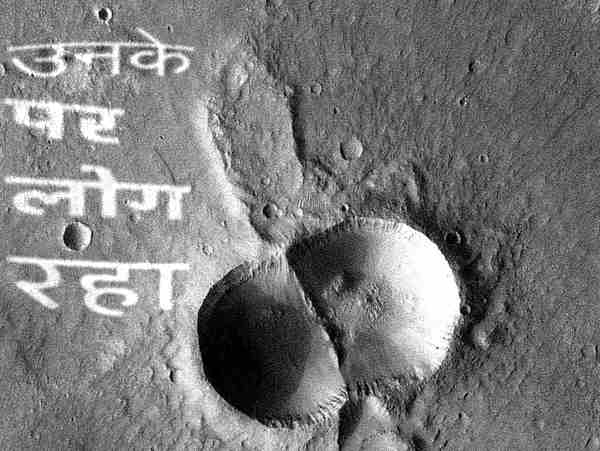 उनके
पर
लोग
रहा